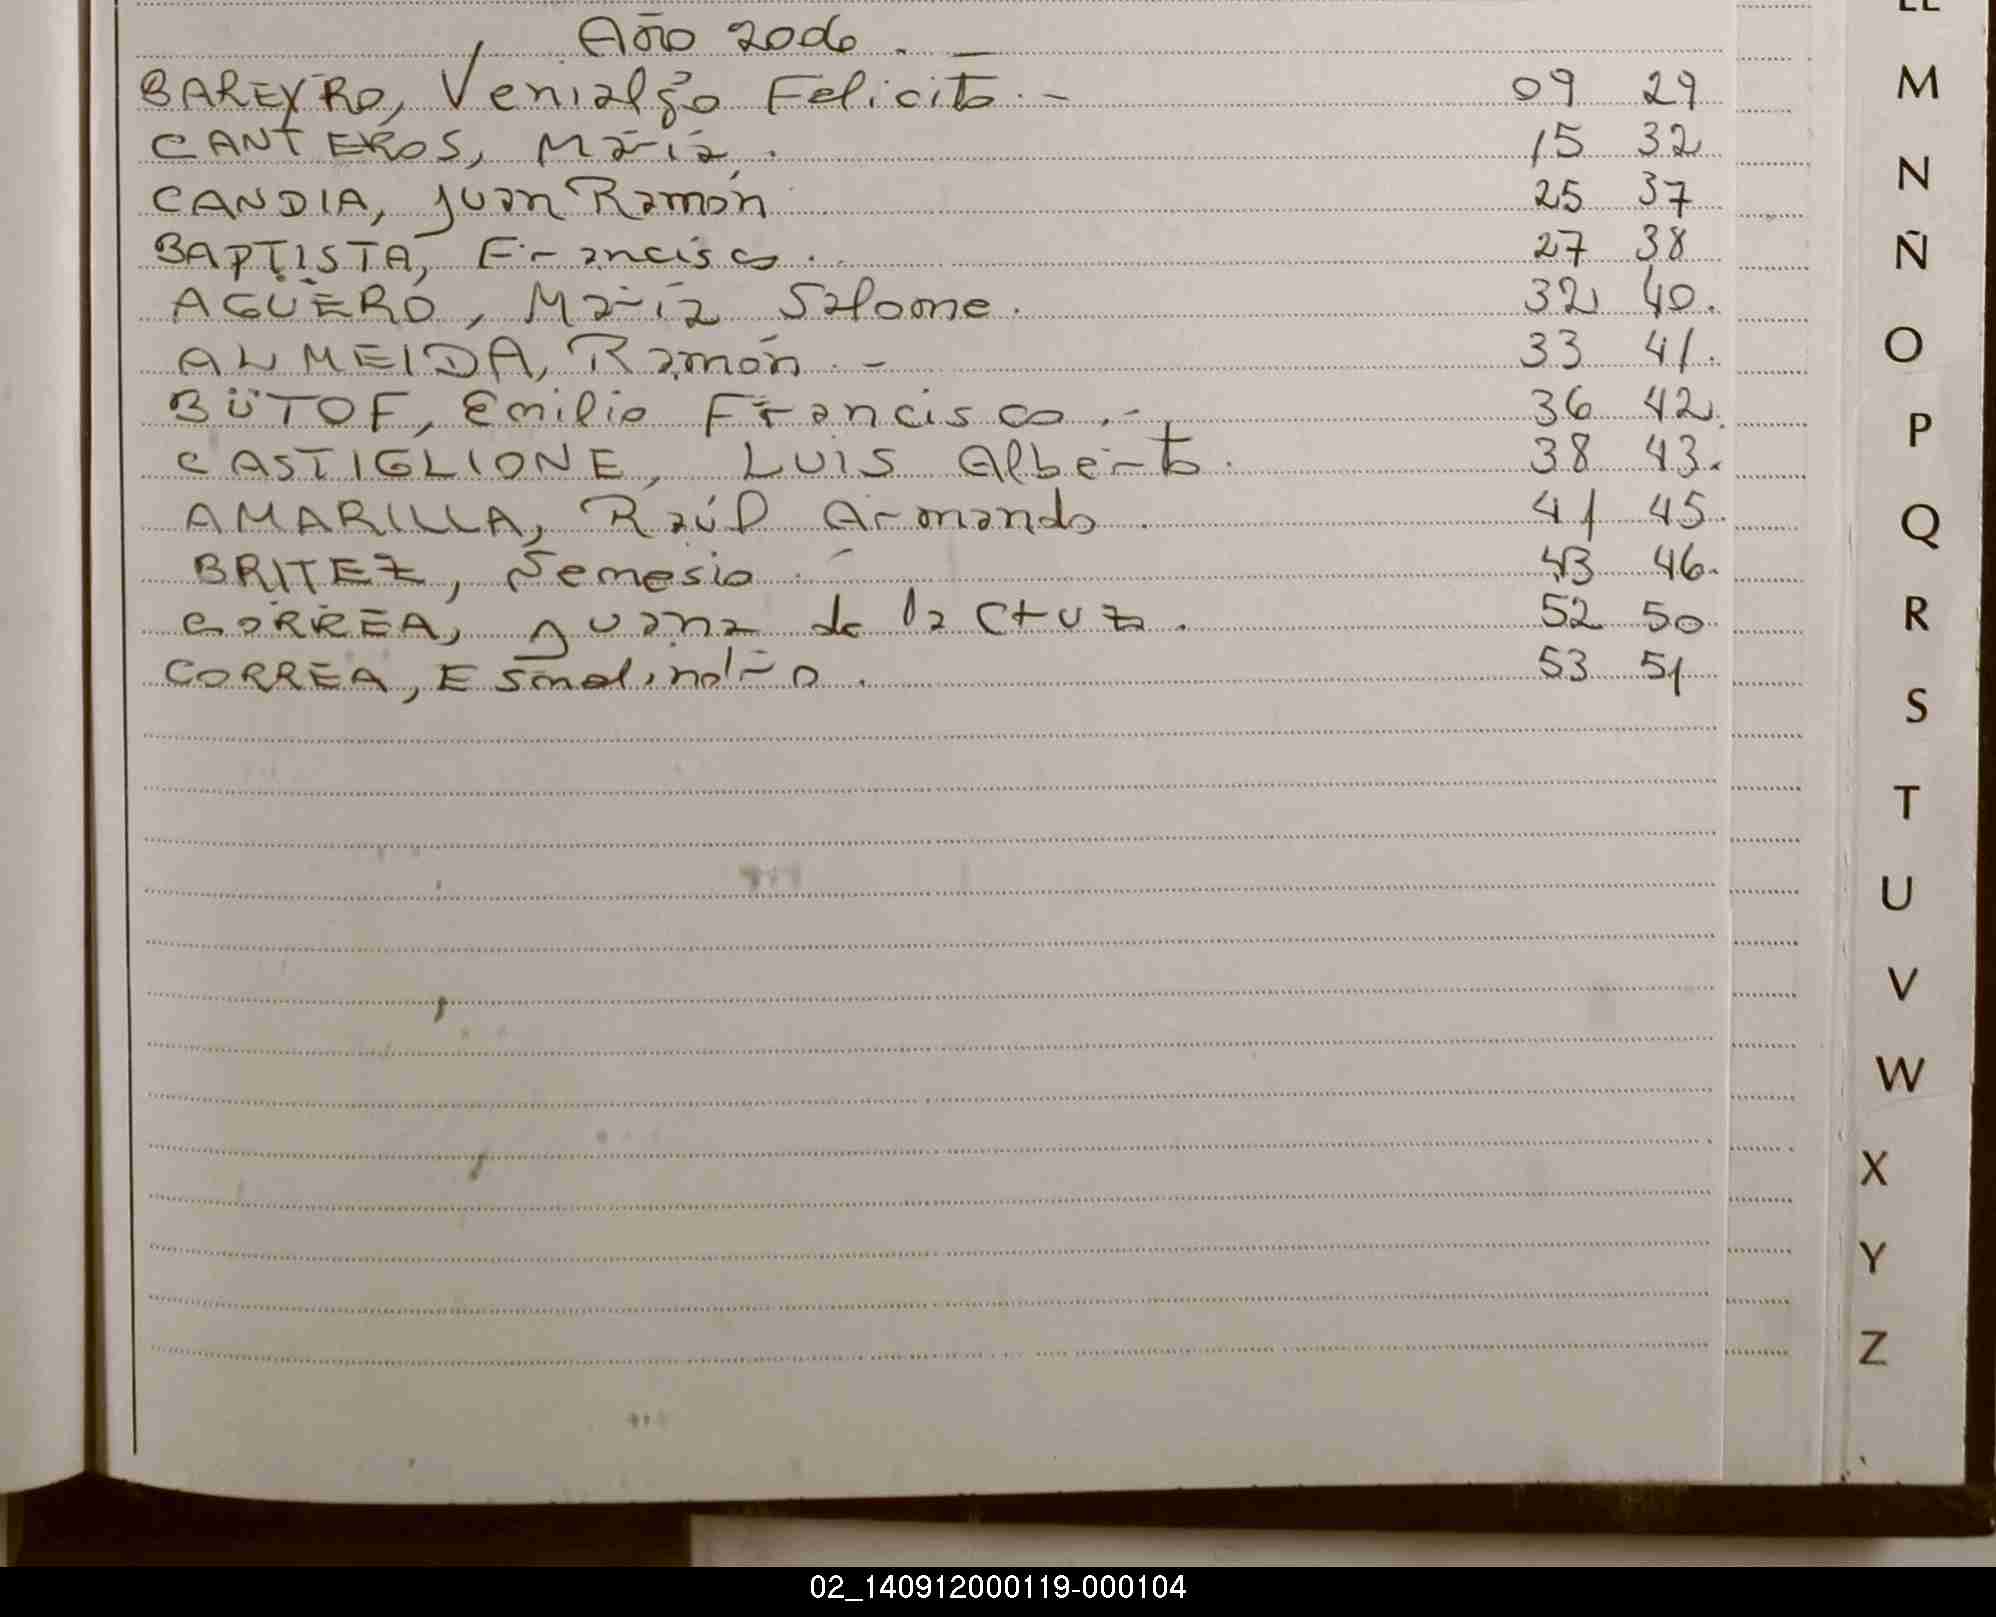 Año 2006. —
BAREYRO, Venialgo Felicita. - 09 29
CANTEROS, María. 15 32
CANDIA, Juan Ramón 25 37
BAPTISTA, Francisco. 27 38
AGÜERO, María Salome. 32 40.
ALMEIDA, Ramón. - 33 41.
BÜTOF, Emilio Francisco. - 36 42.
CASTIGLIONE, LUIS Alberto. 38 43.
AMARILLA, Raúl Armando. 41 45.
BRITEZ, Nemesio. - 43 46.
CORREA, Juana de la Cruz. 52 50
CORREA, Esmelindro. 53 51
LL
M
N
Ñ
O
P
Q
R
S
T
U
V
W
X
Y
Z
02_140912000119-000104